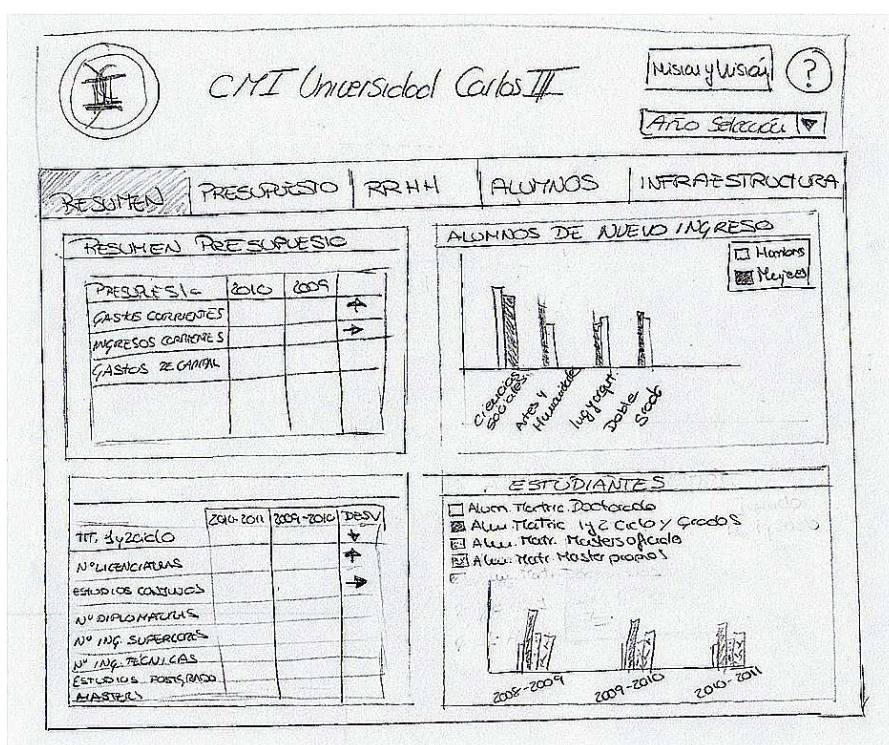 CMI Universidad Carlos III
Misión y Visión
?
Año Selección
RESUMEN
PRESUPUESTO
RRHH
ALUMNOS
INFRAESTRUCTURA
RESUMEN PRESUPUESTO
PRESUPUESTO 2010 2009
GASTOS CORRIENTES
INGRESOS CORRIENTES
GASTOS DE CAPITAL
ALUMNOS DE NUEVO INGRESO
Hombres
Mujeres
Ciencias Sociales..
Artes y Humanidade
Ing y arquit.
Doble Grado
2010-2011 2009-2010 DESV
TIT. 1y2 ciclo
Nº LICENCIATURAS
ESTUDIOS CONJUNTOS
Nº DIPLOMATURAS
Nº ING. SUPERIORES
Nº ING. TÉCNICAS
ESTUDIOS POSTGRADO
MASTERS
ESTUDIANTES
Alum. Matric. Doctorado
Alum. Matric 1y2 Ciclo y Grados
Alum. Matr. Masters Oficiale
Alum. Matr. Master propios
2008-2009
2009-2010
2010-2011